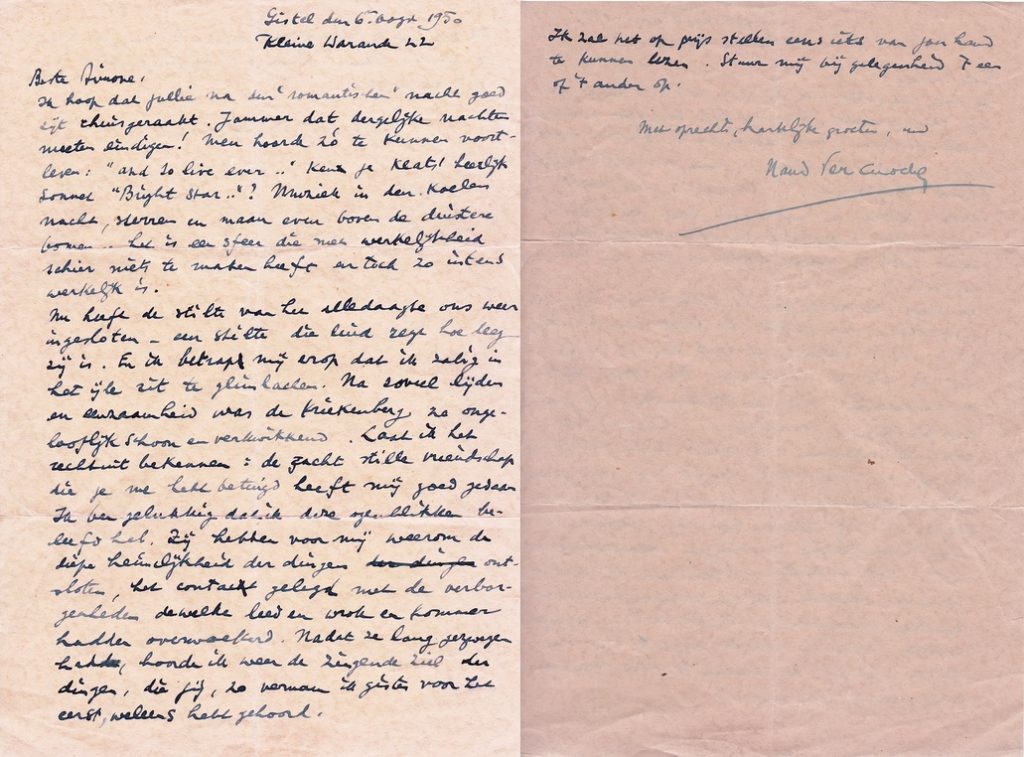 Gistel den 6. oogst 1950
Kleine Warande 22
Beste Simone,
Ik hoop dat jullie na den 'romantischen' nacht goed
zijt thuisgeraakt. Jammer dat dergelijke nachten
moeten eindigen! Men hoorde zó te kunnen voort-
leven: "and so live ever .." Ken je Keats' heerlijk
sonnet "Bright Star.."? Muziek in den koelen
nacht, sterren en maan even boven de duistere
bomen .. het is een sfeer die met werkelijkheid
schier niets te maken heeft en toch zo intens
werkelijk is.
Nu heeft de stilte van het alledaagse ons weer
ingesloten – een stilte die luid zegt hoe leeg
zij is. En ik betrap mij erop dat ik zalig in
het ijle zit te glimlachen. Na zoveel lijden
en eenzaamheid was de Kriekenberg zo onge-
looflijk schoon en verkwikkend. Laat ik het
rechtuit bekennen: de zacht stille vriendschap
die je me hebt betuigd heeft mij goed gedaan
Ik ben gelukkig dat ik deze ogenblikken be-
leefd heb. Zij hebben voor mij weerom de
diepe heimelijkheid der dingen der dingen ont-
sloten, het contact gelegd met de verbor-
genheden dewelke leed en wrok en kommer
hadden overwoekerd. Nadat ze lang gezwegen
hadden, hoorde ik weer de zingende ziel der
dingen, die jij, zo vernam ik gister voor het
eerst, weleens hebt gehoord.
Ik zal het op prijs stellen eens iets van jou hand
te kunnen lezen. Stuur mij bij gelegenheid 't een
of 't ander op.
Met oprechte, hartelijke groeten,
Nand Vercnocke